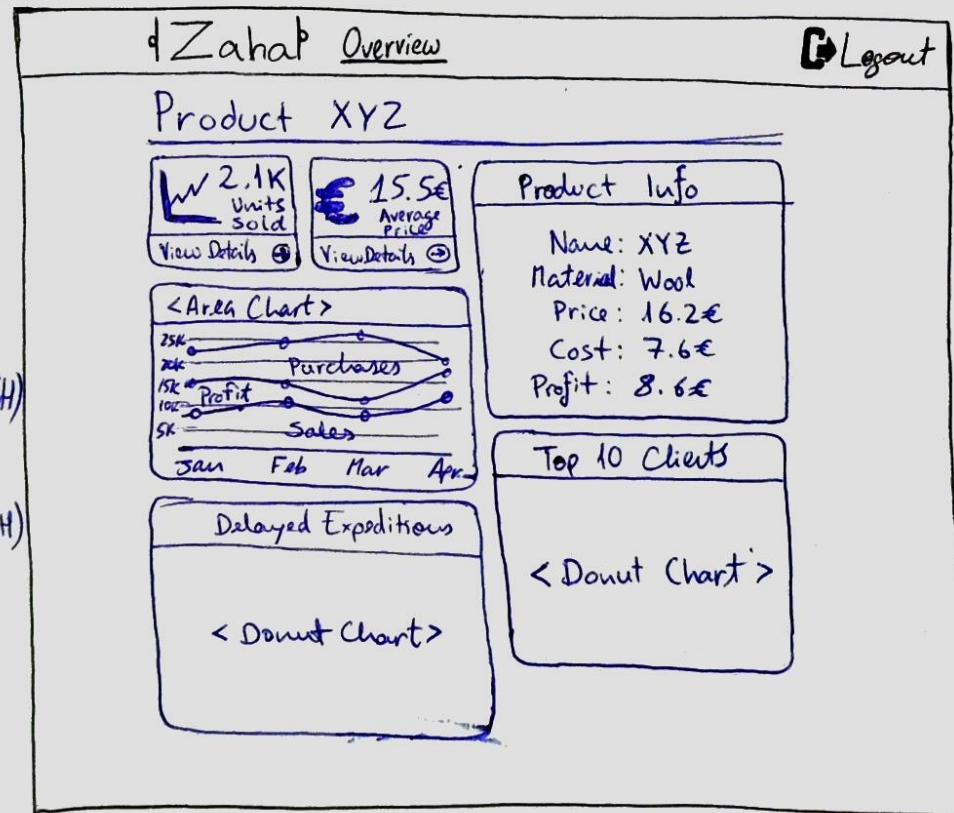 Zaha Overview
Logout
Product XYZ
2.1K
Units
Sold
View Details
€ 15.5€
Average
Price
View Details
Product Info
Name: XYZ
Material: Wool
Price: 16.2€
Cost: 7.6€
Profit: 8.6€
<Area Chart>
25K
20K
15K
10K
5K
Purchases
Profit
Sales
Jan Feb Mar Apr
Top 10 Clients
<Donut Chart>
Delayed Expeditions
<Donut Chart>
H)
H)